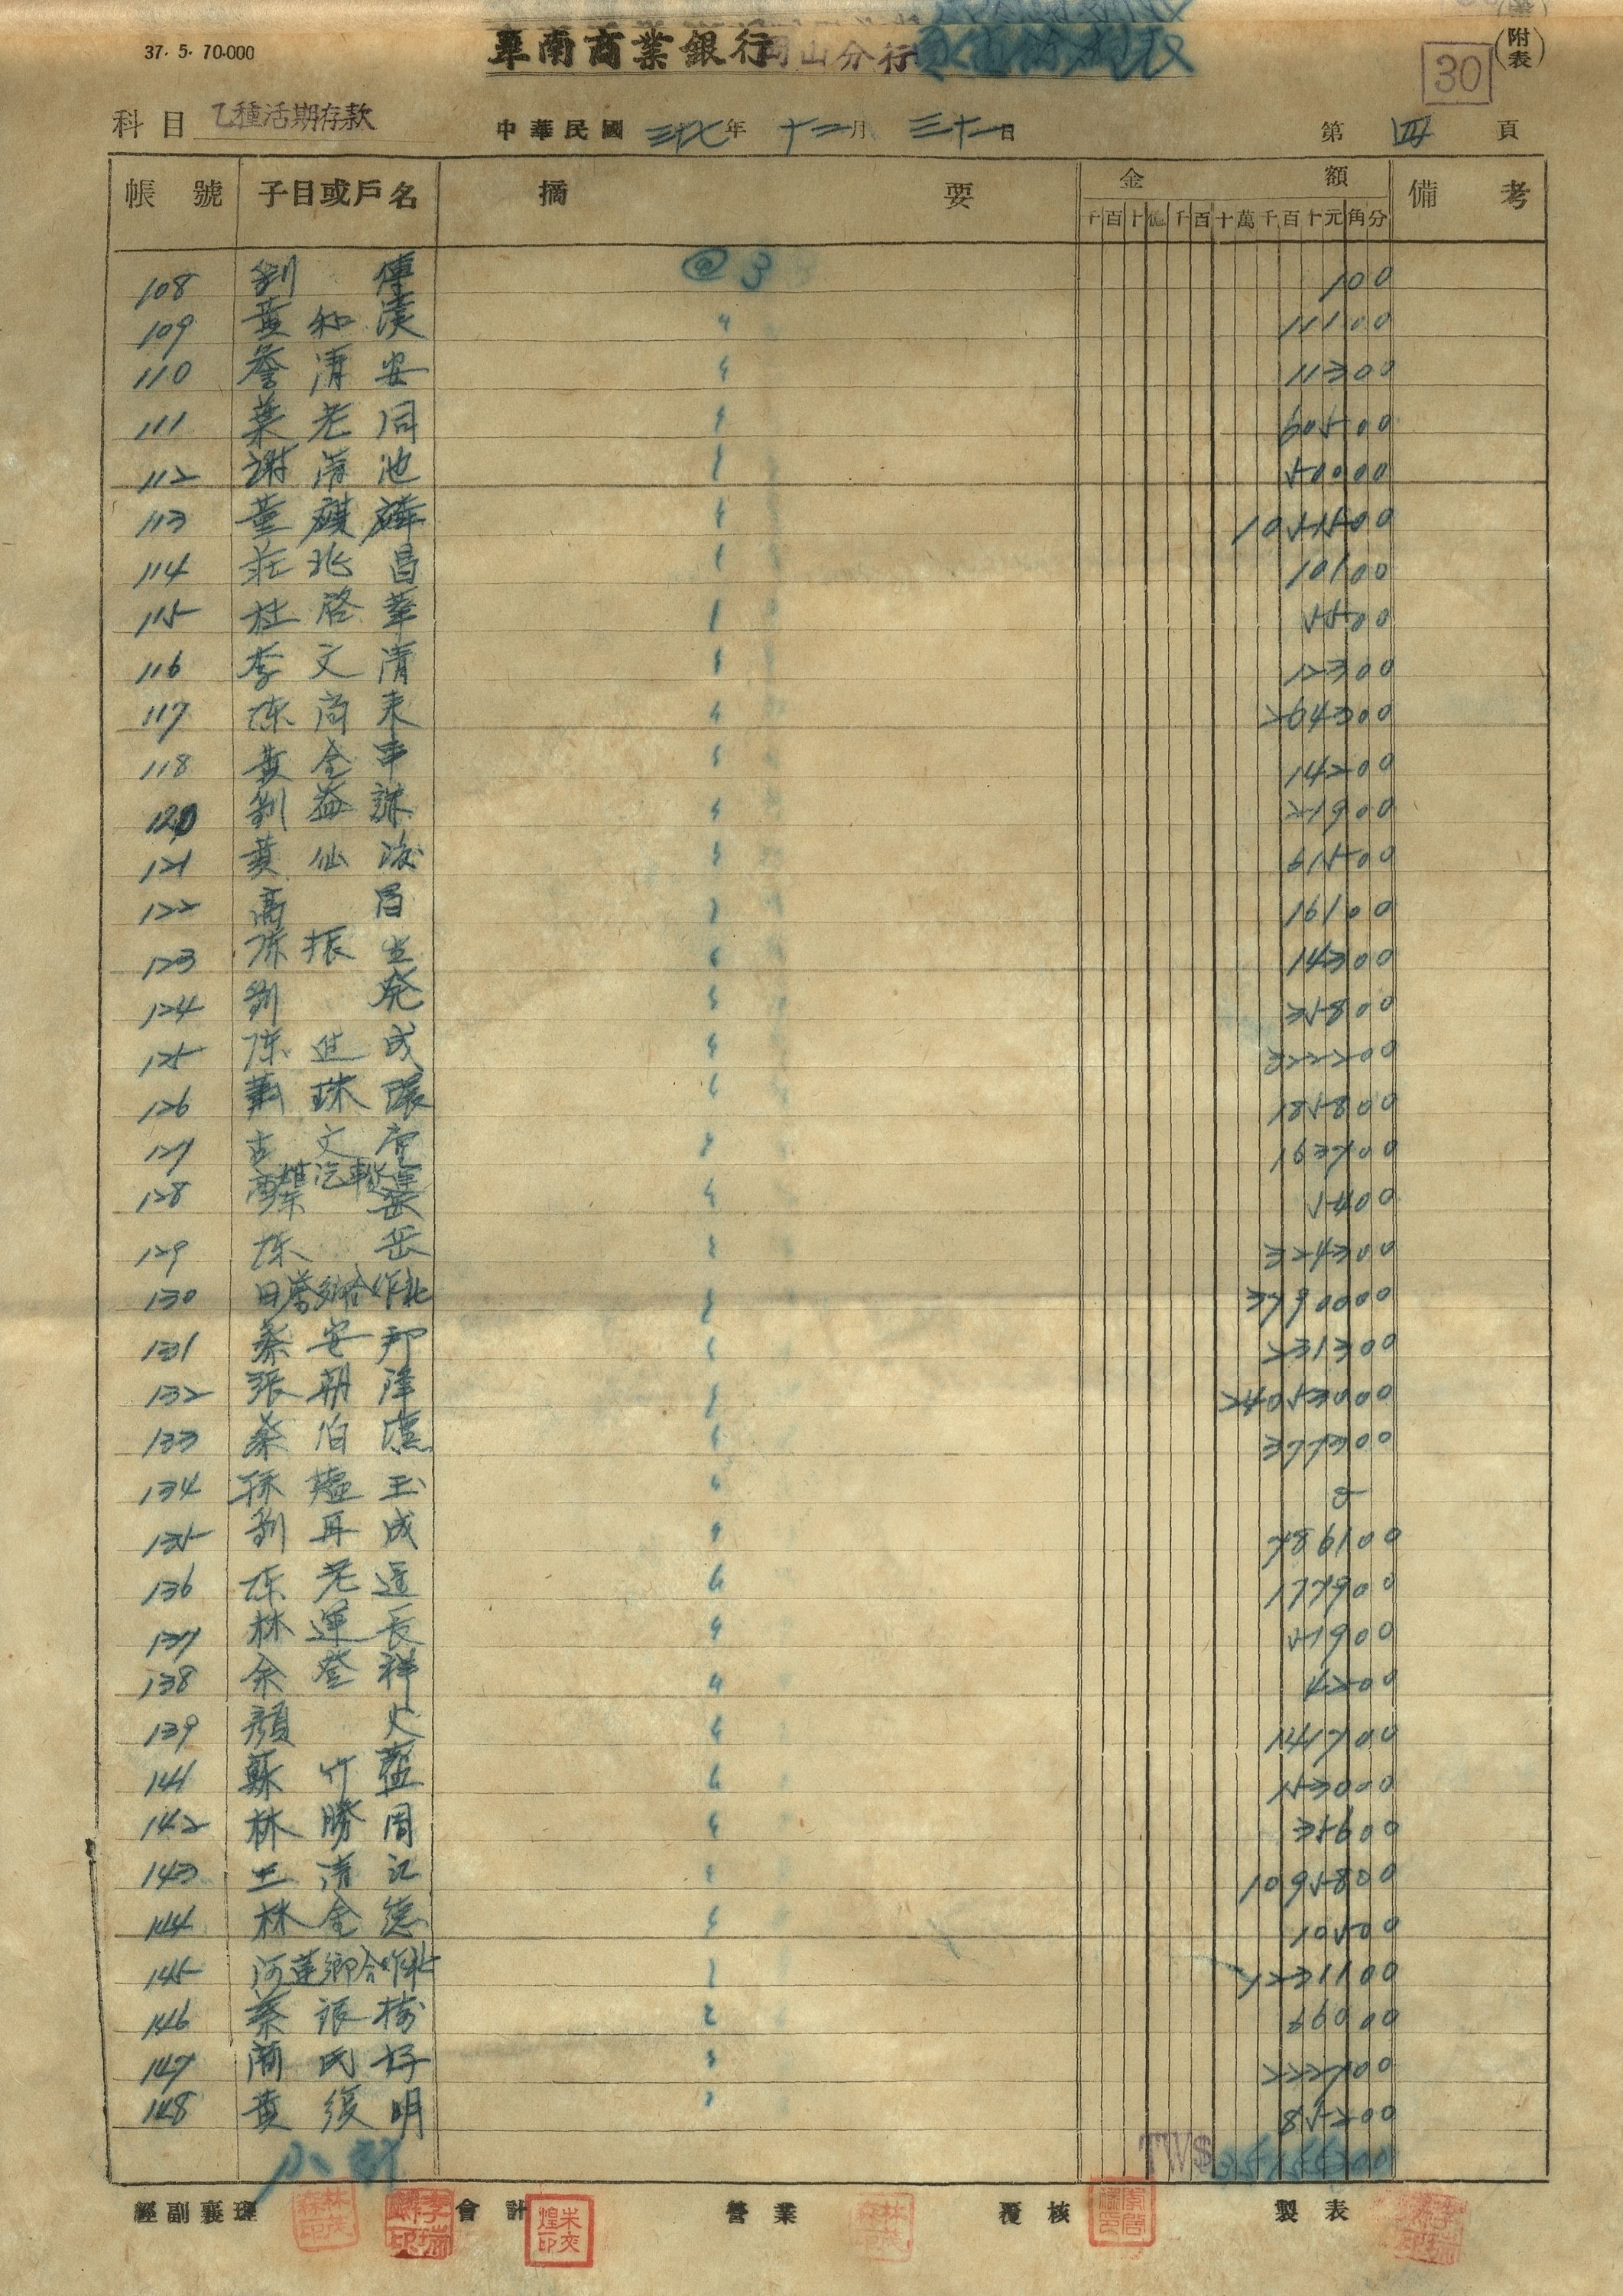 37. 5. 70.000
華南商業銀行岡山分行
30
(附表)
科目 乙種活期存款
中華民國 三十七年 十二月 三十一日
第 四 頁
帳號 子目或戶名 摘要 金額 備考
千百十億千百十萬千百十元角分
108 劉 傳 @ 3 100
109 黃和漢 〃 11100
110 詹清安 〃 11300
111 葉老同 〃 60500
112 謝清池 〃 50000
113 董麒麟 〃 1051500
114 莊兆昌 〃 10100
115 杜啓華 〃 5500
116 李文清 〃 12300
117 陳商來 〃 264300
118 黃金串 〃 14200
120 劉益謀 〃 21900
121 黃仙 〃 61500
122 高 昌 〃 16100
123 陳振 〃 14300
124 劉 発 〃 35800
125 陳進成 〃 322200
126 蕭珠環 〃 185800
127 古文 〃 163700
128 高雄汽車 〃 5400
129 陳 岳 〃 324300
130 合作社 〃 3790000
131 蔡安邦 〃 231300
132 張朝隆 〃 24053000
133 蔡伯漢 〃 377300
134 孫 玉 〃
135 劉再成 〃 786100
136 陳老遥 〃 177900
137 林運長 〃 51900
138 余登祥 〃 4200
139 顏 火 〃 141700
141 蘇竹藍 〃 153000
142 林勝周 〃 35600
143 王清江 〃 1095800
144 林金德 〃 10500
145 阿蓮鄉合作社 〃 7231100
146 蔡振樹 〃 66000
147 簡氏好 〃 222700
148 黃復明 〃 85200
小計 TW$
經副襄理 會計 營業 覆核 製表